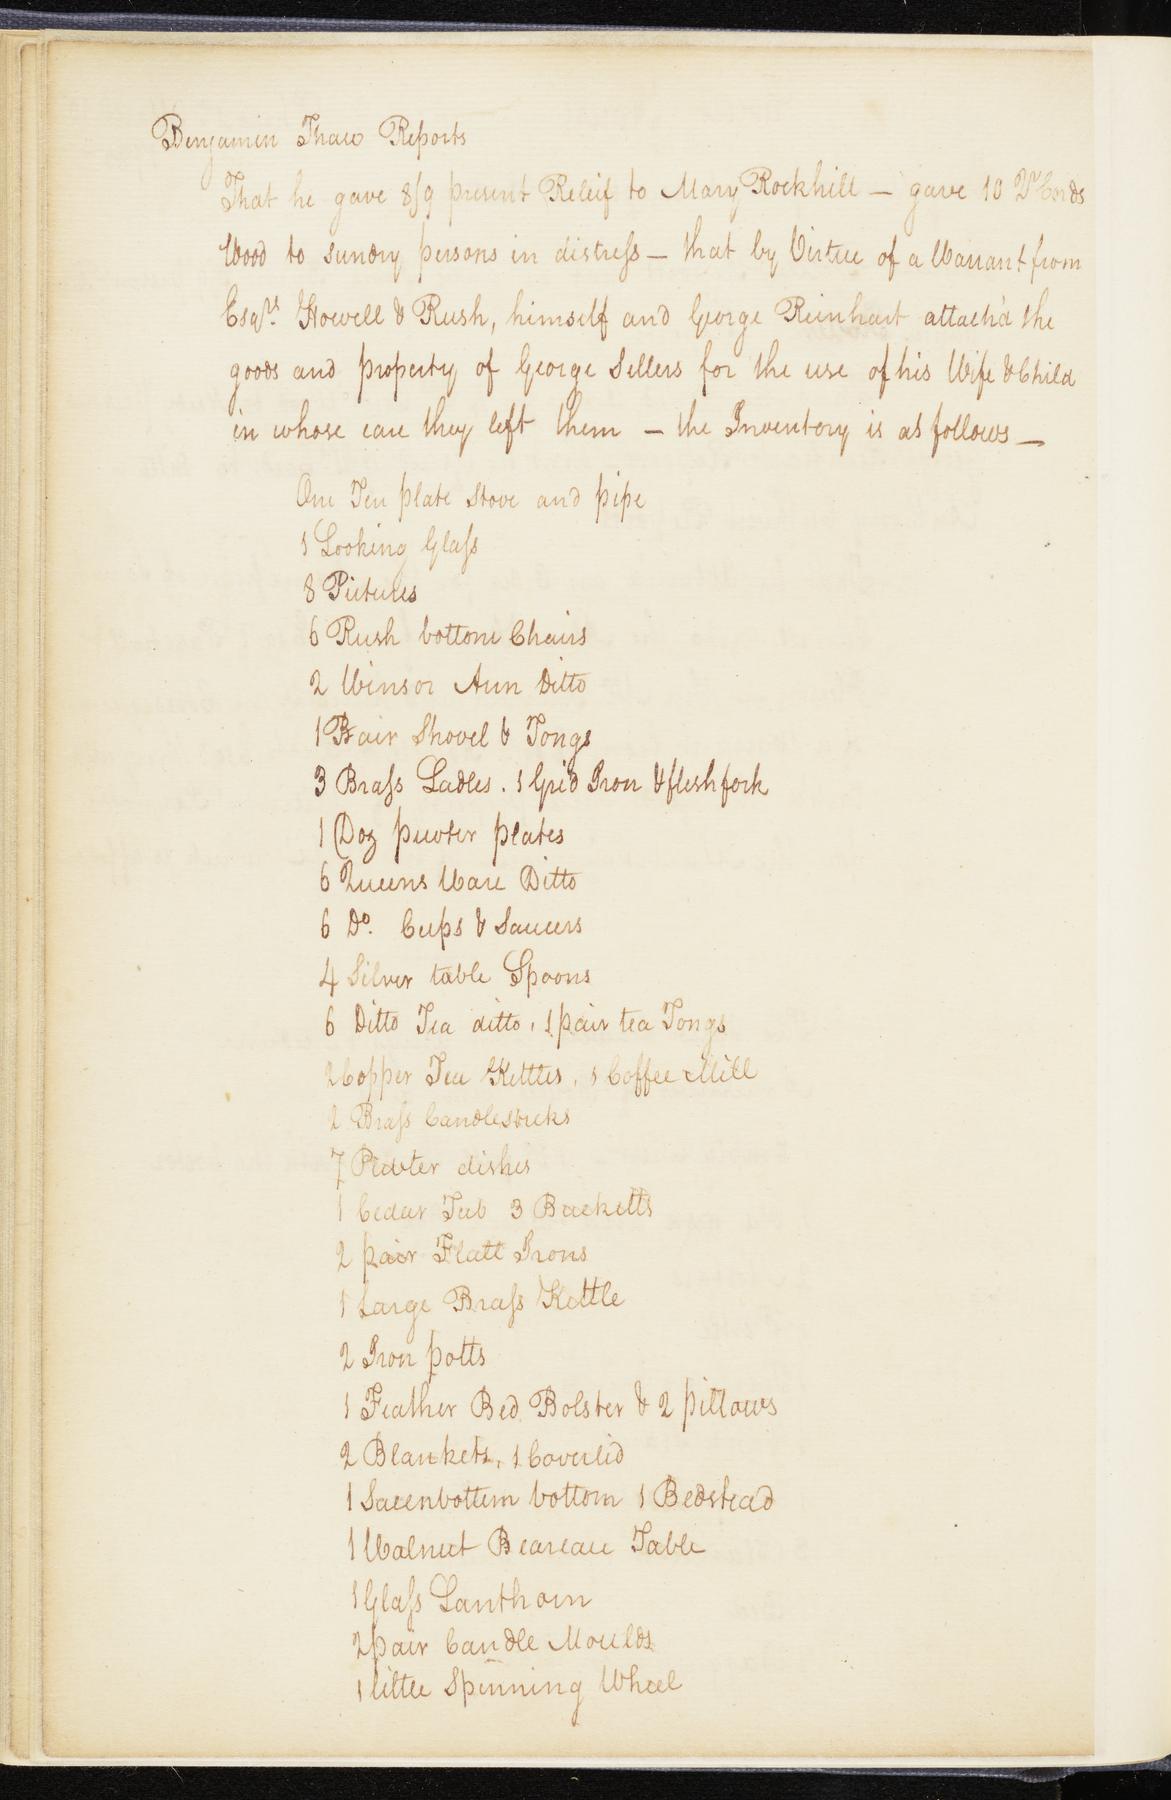 Benjamin Thaw Reports
That he gave 8/9 present Releif to Mary Rockhill — gave 10 Qr Cords
Wood to sundry persons in distress — that by Virtue of a Warrant from
Esqrs. Howell & Rush, himself and George Reinhart attach'd the
goods and property of George Sellers for the use of his Wife & Child
in whose care they left them — the Inventory is as follows —
One Ten plate Stove and pipe
1 Looking Glass
8 Pictures
6 Rush bottom Chairs
2 Winsor Arm Ditto
1 Pair Shovel & Tongs
3 Brass Ladles. 1 Grid Iron & fleshfork
1 Doz pewter plates
6 Queens Ware Ditto
6 Do. Cups & Saucers
4 Silver table Spoons
6 Ditto Tea ditto, 1 pair tea Tongs
2 Copper Tea Kettles, 1 Coffee Mill
2 Brass Candlesticks
7 Pewter dishes
1 Cedar Tub 3 Bucketts
2 pair Flatt Irons
1 Large Brass Kettle
2 Iron potts
1 Feather Bed Bolster & 2 pillows
2 Blankets, 1 Coverlid
1 bottom 1 Bedstead
1 Walnut Beareau Table
1 Glass Lanthorn
2 pair Candle Moulds
1 little Spinning Wheel